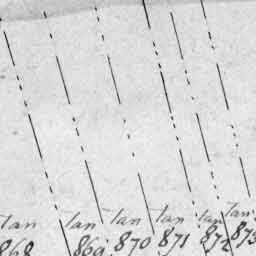 lan lan lan lan lan lan
868 869 870 871 872 873